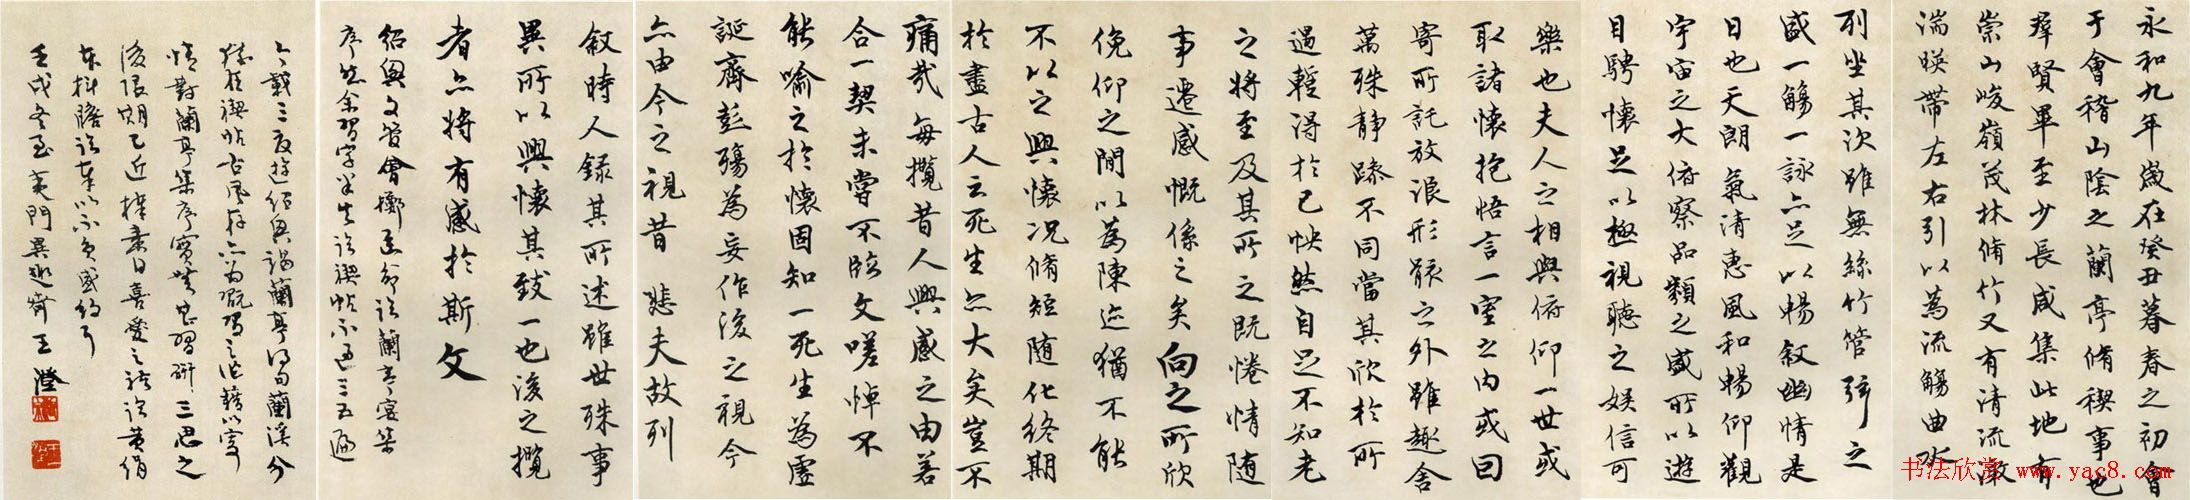 永和九年歲在癸丑暮春之初會
于會稽山陰之蘭亭脩稧事也
羣賢畢至少長咸集此地有
崇山峻嶺茂林脩竹又有清流激
湍暎帶左右引以為流觴曲水
列坐其次雖無絲竹管弦之
盛一觴一詠亦足以暢敘幽情是
日也天朗氣清惠風和暢仰觀
宇宙之大俯察品類之盛所以遊
目騁懷足以極視聽之娛信可
樂也夫人之相與俯仰一世或
取諸懷抱悟言一室之內或曰
寄所託放浪形骸之外雖趣舍
萬殊靜躁不同當其欣於所
遇蹔得於己怏然自足不知老
之將至及其所之既惓情随
事遷感慨係之矣向之所欣
俛仰之閒以為陳迹猶不能
不以之興懷況脩短随化終期
於盡古人云死生亦大矣豈不
痛哉每攬昔人興感之由若
合一契未嘗不臨文嗟悼不
能喻之於懷固知一死生為虛
誕齊彭殤為妄作後之視今
亦由今之視昔悲夫故列
敘時人錄其所述雖世殊事
異所以興懷其致一也後之攬
者亦將有感於斯文
紹興文管會擲函命詠蘭亭宴集
序然余習字半生詠禊帖不過三五遍
三度遊紹興謁蘭亭
禊帖古風存
情對蘭亭集序寶貴習研三思之
後限期已近擇書日喜愛之
壬戌冬至夷門王澄
书法欣赏 www.yac8.com